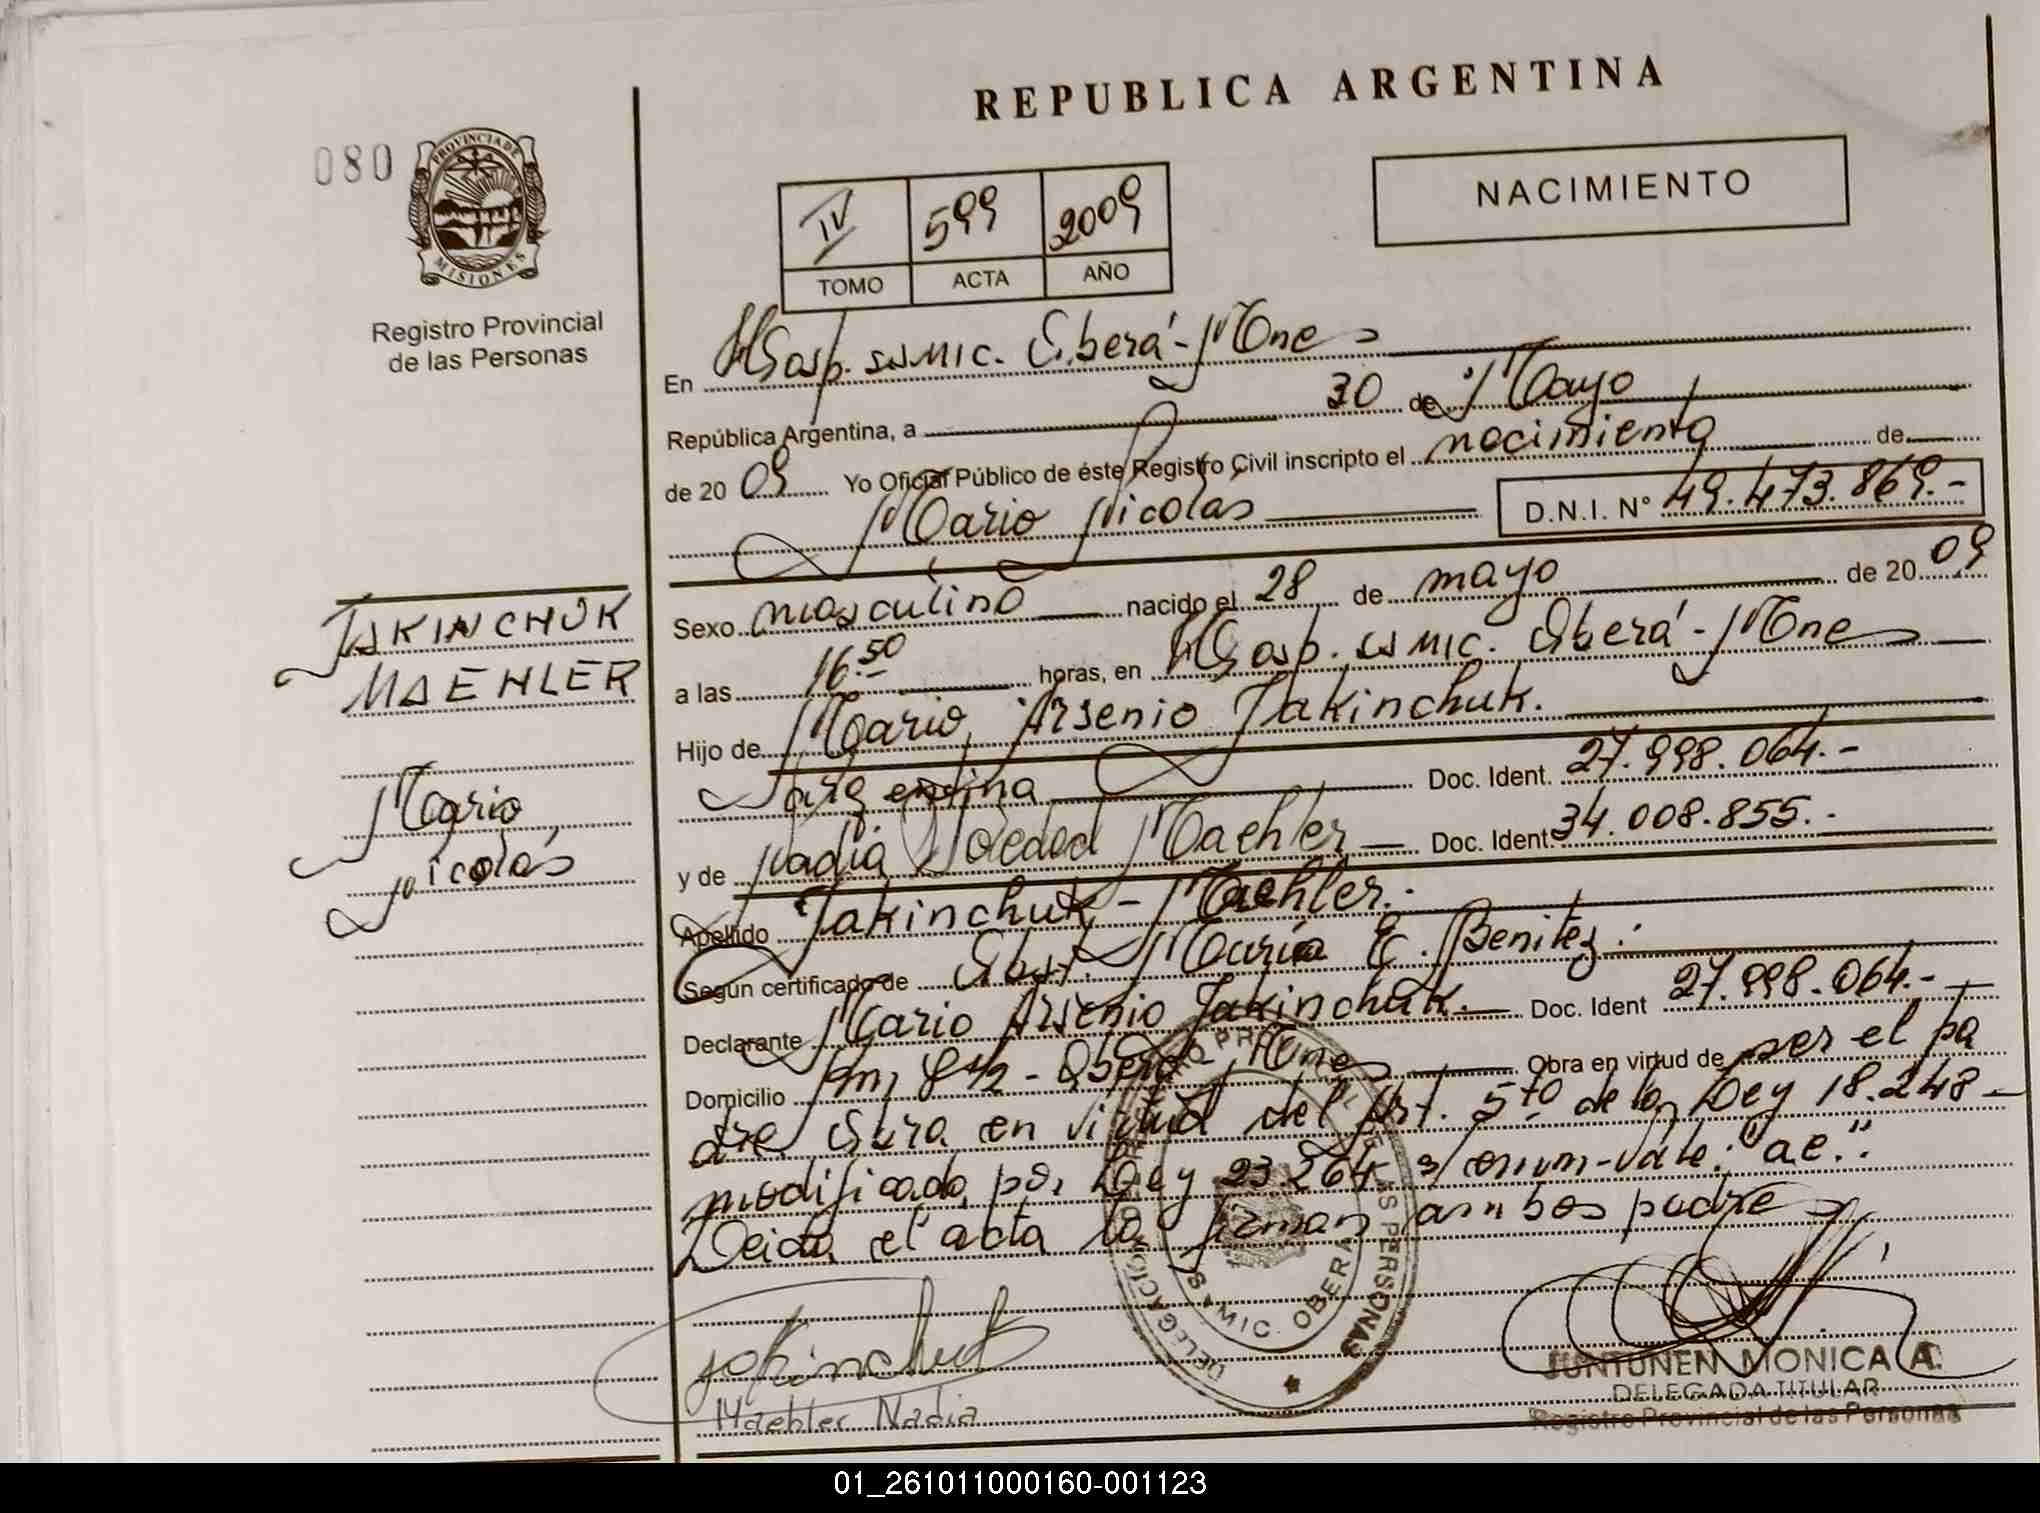 REPUBLICA ARGENTINA
080
PROVINCIA DE
MISIONES
Registro Provincial
de las Personas
NACIMIENTO
IV 599 2009
TOMO ACTA AÑO
En Hosp. SAMIC. Oberá - Mnes
República Argentina, a 30 de Mayo
de 20 09 Yo Oficial Público de éste Registro Civil inscripto el nacimiento de
Mario Nicolás D.N.I. N° 49.473.869.-
Sexo masculino nacido el 28 de mayo de 20 09
a las 16.50 horas, en Hosp. SAMIC. Oberá - Mnes
Hijo de Mario Arsenio Jakinchuk.
Argentina Doc. Ident. 27.998.064.-
y de Nadia Soledad Maehler Doc. Ident. 34.008.855.-
Apellido Jakinchuk - Maehler.
Según certificado de Obst. María E. Benitez.
Declarante Mario Arsenio Jakinchuk. Doc. Ident 27.998.064.-
Domicilio Km, 8 1/2 - Oberá - Mnes Obra en virtud de ser el pa
dre Obra en virtud del Art. 5to de la Ley 18.248-
modificada por Ley 23.264 s/enm-vale: "ae".
Leida el acta la firman ambos padres
JAKINCHUK
MAEHLER
Mario
Nicolás
Jakinchuk
Maehler Nadia
DELEGACION
REGISTRO PROVINCIAL DE LAS PERSONAS
SAMIC. OBERA
JUNTUNEN MONICA A.
DELEGADA TITULAR
Registro Provincial de las Personas
01_261011000160-001123